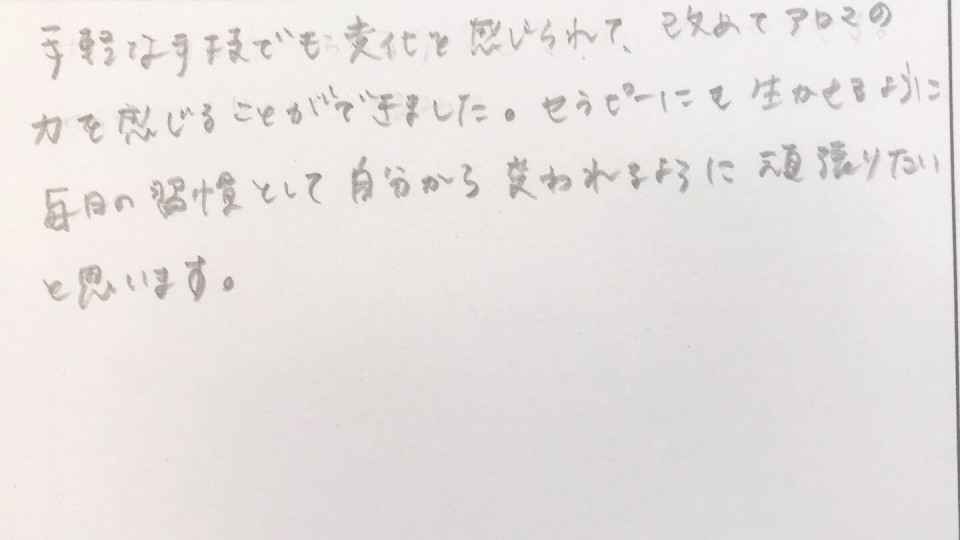 手軽な手技でも変化を感じられて、改めてアロマの
力を感じることができました。セラピーにも生かせるように
毎日の習慣として自分から変われるように頑張りたい
と思います。